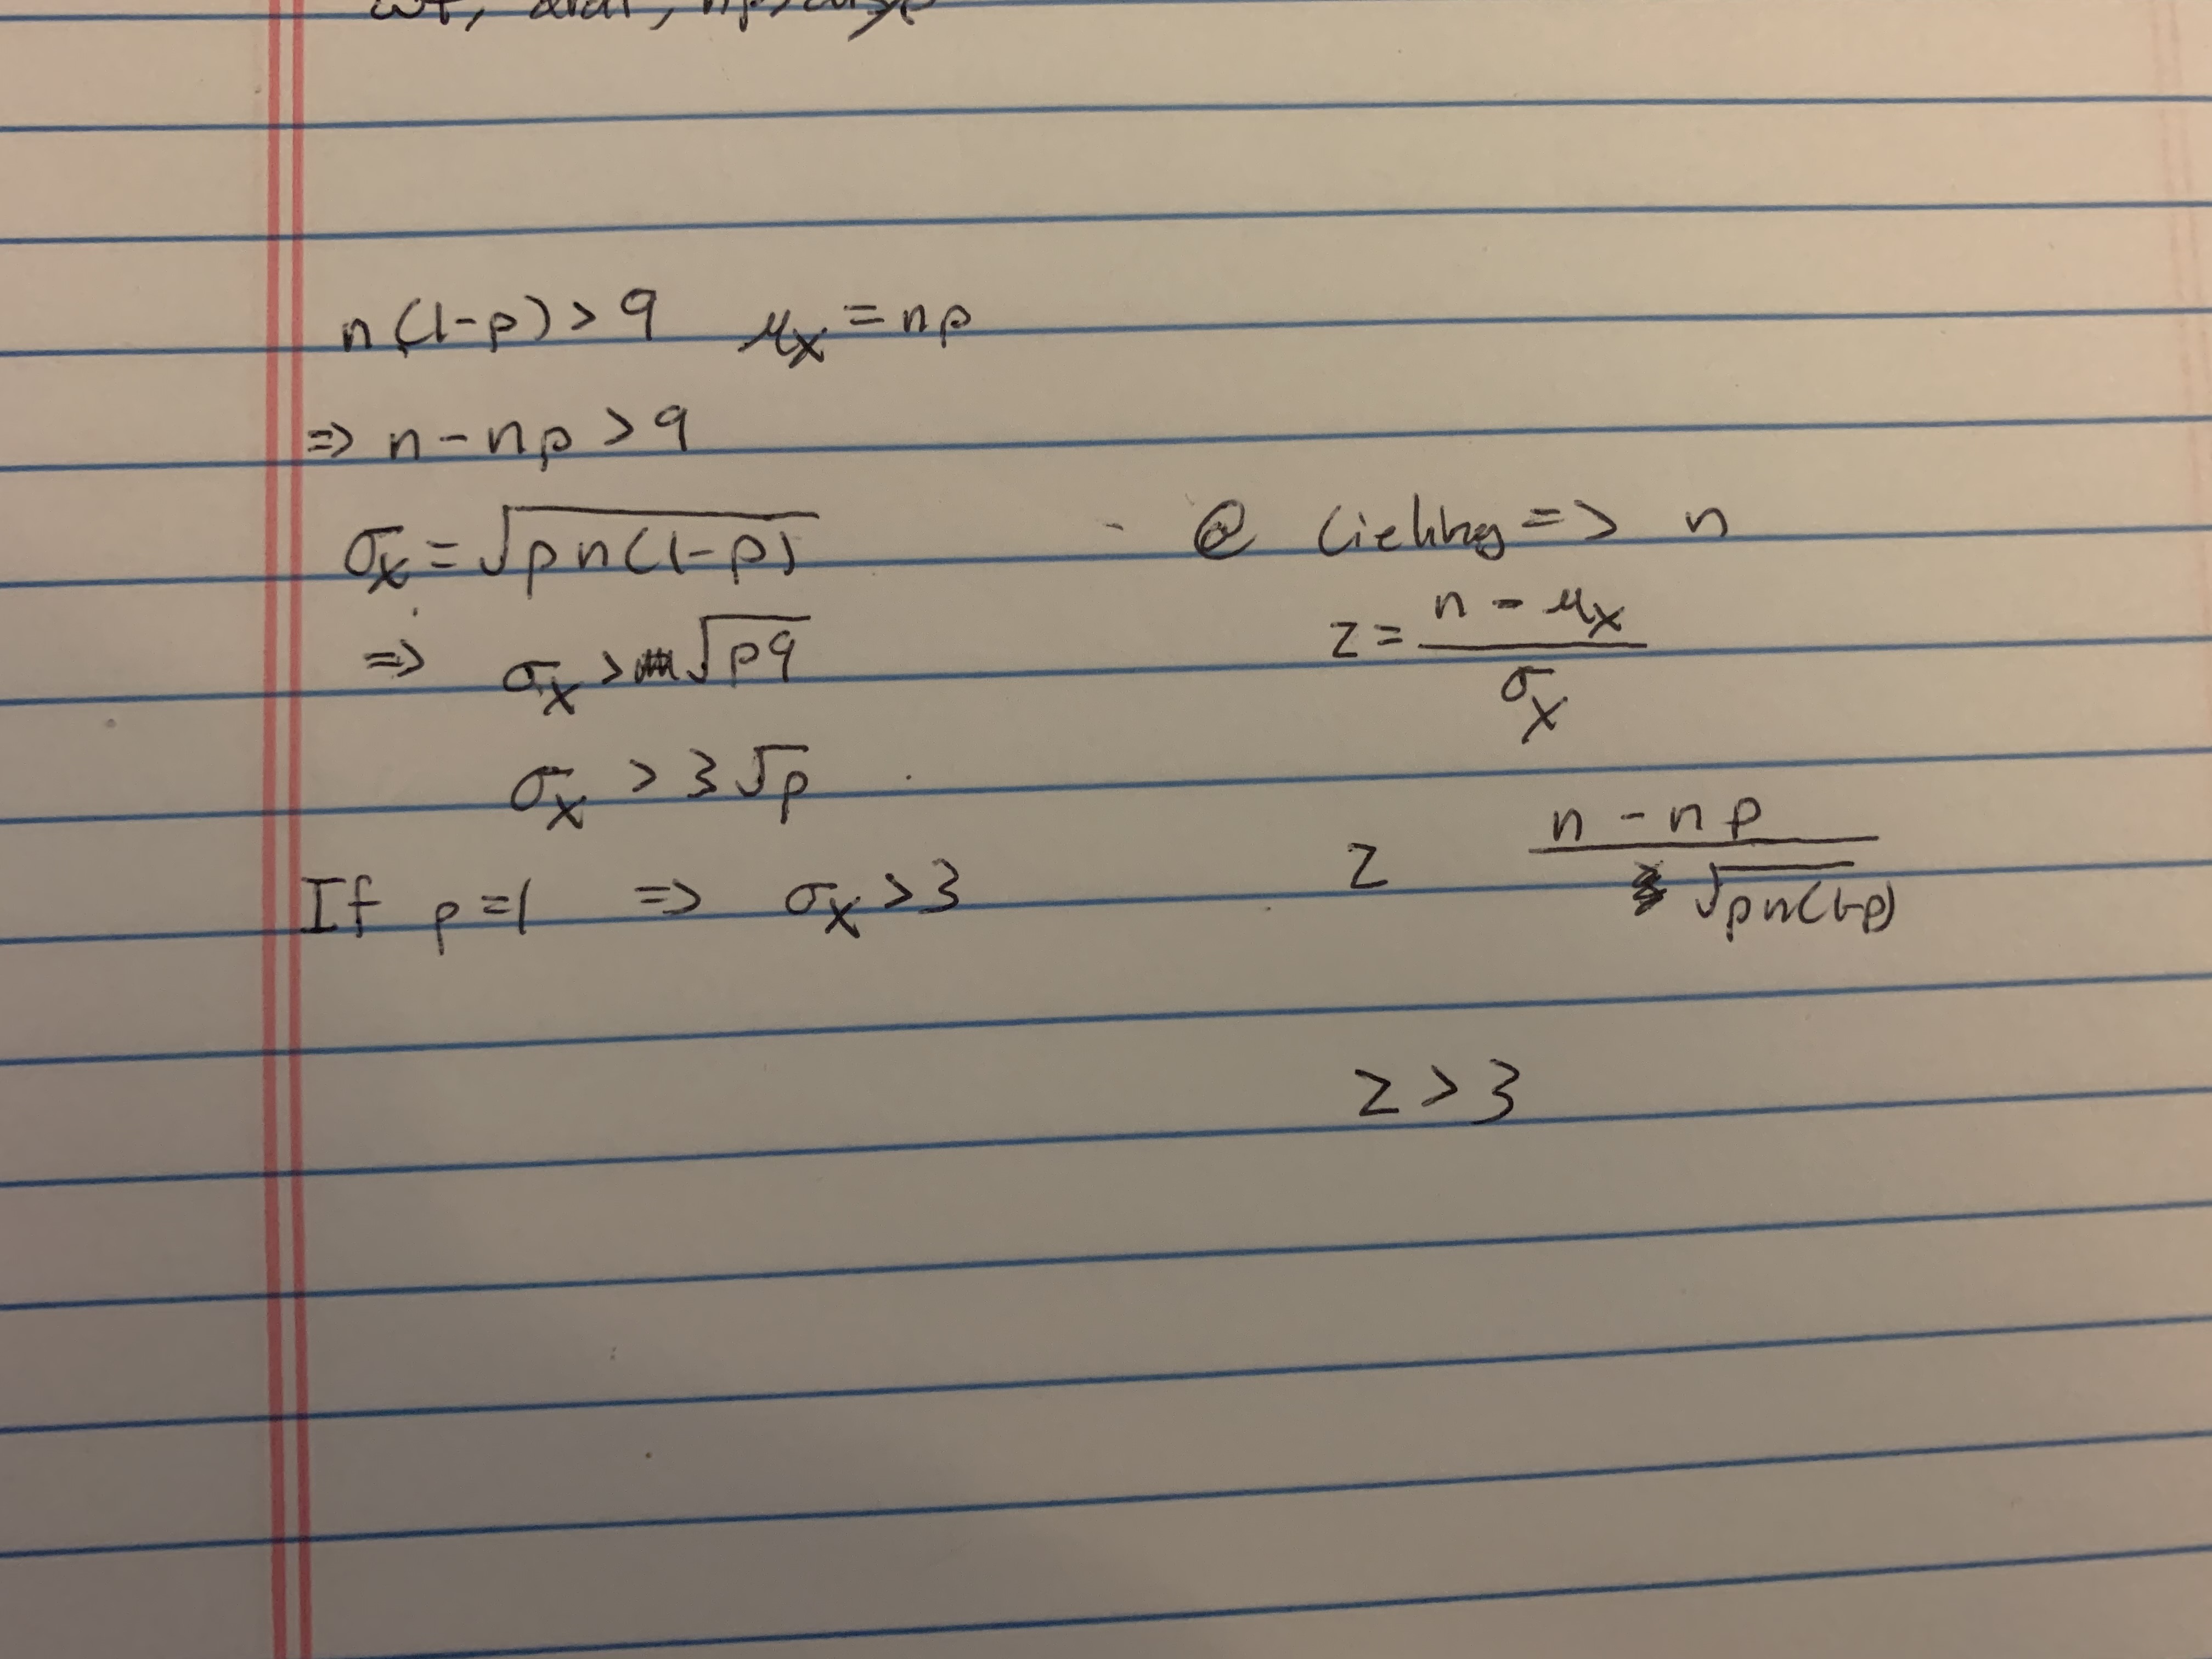 n(1-p) > 9 μx = np
=> n - np > 9
σx = √pn(1-p)
=> σx > √p9
σx > 3√p
If p=1 => σx > 3
@ => n
z = (n - μx)/σx
z (n - np)/√pn(1-p)
z > 3